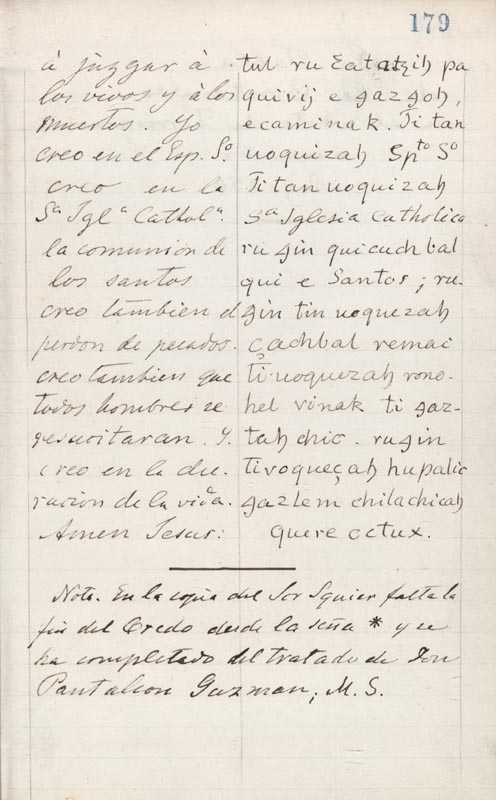 179
á juzgar á
los vivos y á los
muertos. Yo
creo en el Esp. Sº
creo en la
Sª Iglª Catholª.
la comunión de
los santos
creo tambien el
perdon de pecados.
creo tambien que
todos hombres se
resucitaran. Y.
creo en la du-
racion de la vida.
Amen Jesus:
tul ru Eatatzih pa
quivij e gazgoh,
ecaminak. Ti tan
uoquizah Spto Sº
Ti tan uoquizah
Sª Iglesia Catholica
ru gin quicuchbal
qui e Santos; ru-
gin tin uoquezah
çachbal remac
ti uoquezah rono-
hel vinak ti gaz-
tah chic. rugin
tivoqueçah hupalic
gazlem chilachicah
quere octux.
Nota. En la copia del Sor Squier falta la
fin del Credo desde la seña * y se
ha completado del tratado de Don
Pantaleon Guzman, M. S.